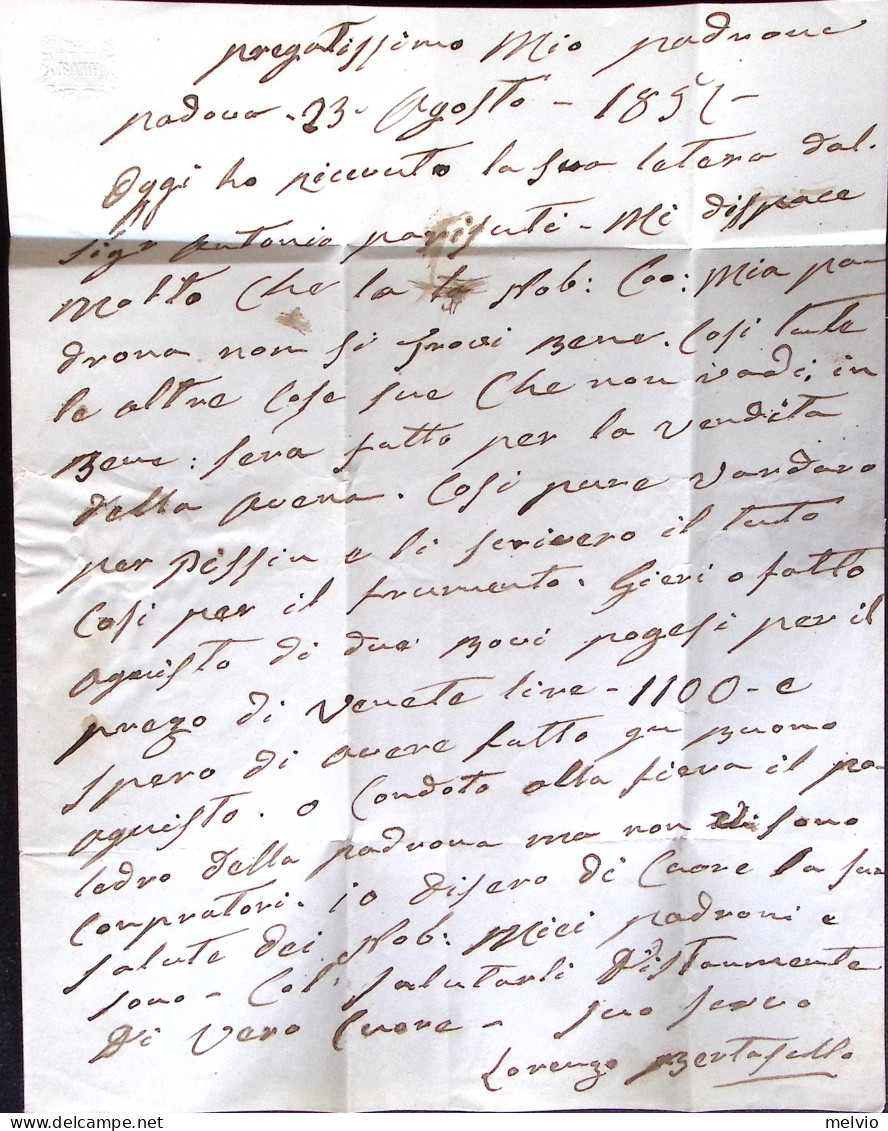 BATH
pregatissimo Mio padrone
padova - 23 - Agosto - 185
Oggi ho riceuto la sua letera dal
sigr Antonio - Mi dispiace
Molto che la Nob: Mia pa
drona non si trovi Bene. Cosi tute
le altre Cose sue Che non vadi in
Bene: sera fatto per la vendita
della avena. Cosi pure Vardaro
per e li scrivero il tuto
Cosi per il frumento. Gieri o fatto
aquisto di due Bovi pogesi per il
prezo di Venete lire - 1100 - e
spero di avere fatto un Buono
aquisto. o Condoto alla fiera il po
ledro della padrona ma non sono
Conpratori. io disero di Cuore la sua
salute dei Nob: Miei padroni e
sono - Col salutarli Distaumente
Di Vero Cuore - suo servo
Lorenzo Bertasello
delcampe.net
melvio